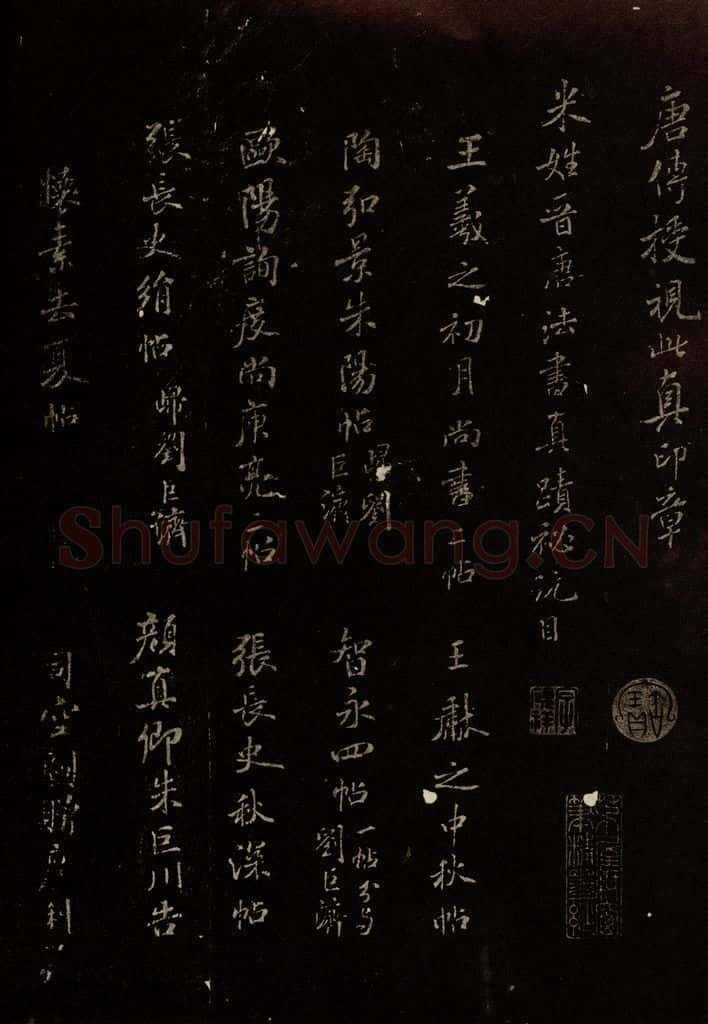 唐傳授視此真印章
米姓晉唐法書真蹟祕玩目
王羲之初月尚書二帖 王獻之中秋帖
陶弘景朱陽帖 歸劉巨濟 智永四帖 一帖分與劉巨濟
歐陽詢度尚庾亮二帖 張長史秋深帖
張長史絹帖 歸劉巨濟 顏真卿朱巨川告
懷素去夏帖 司空圖贈利
Shufawang.CN